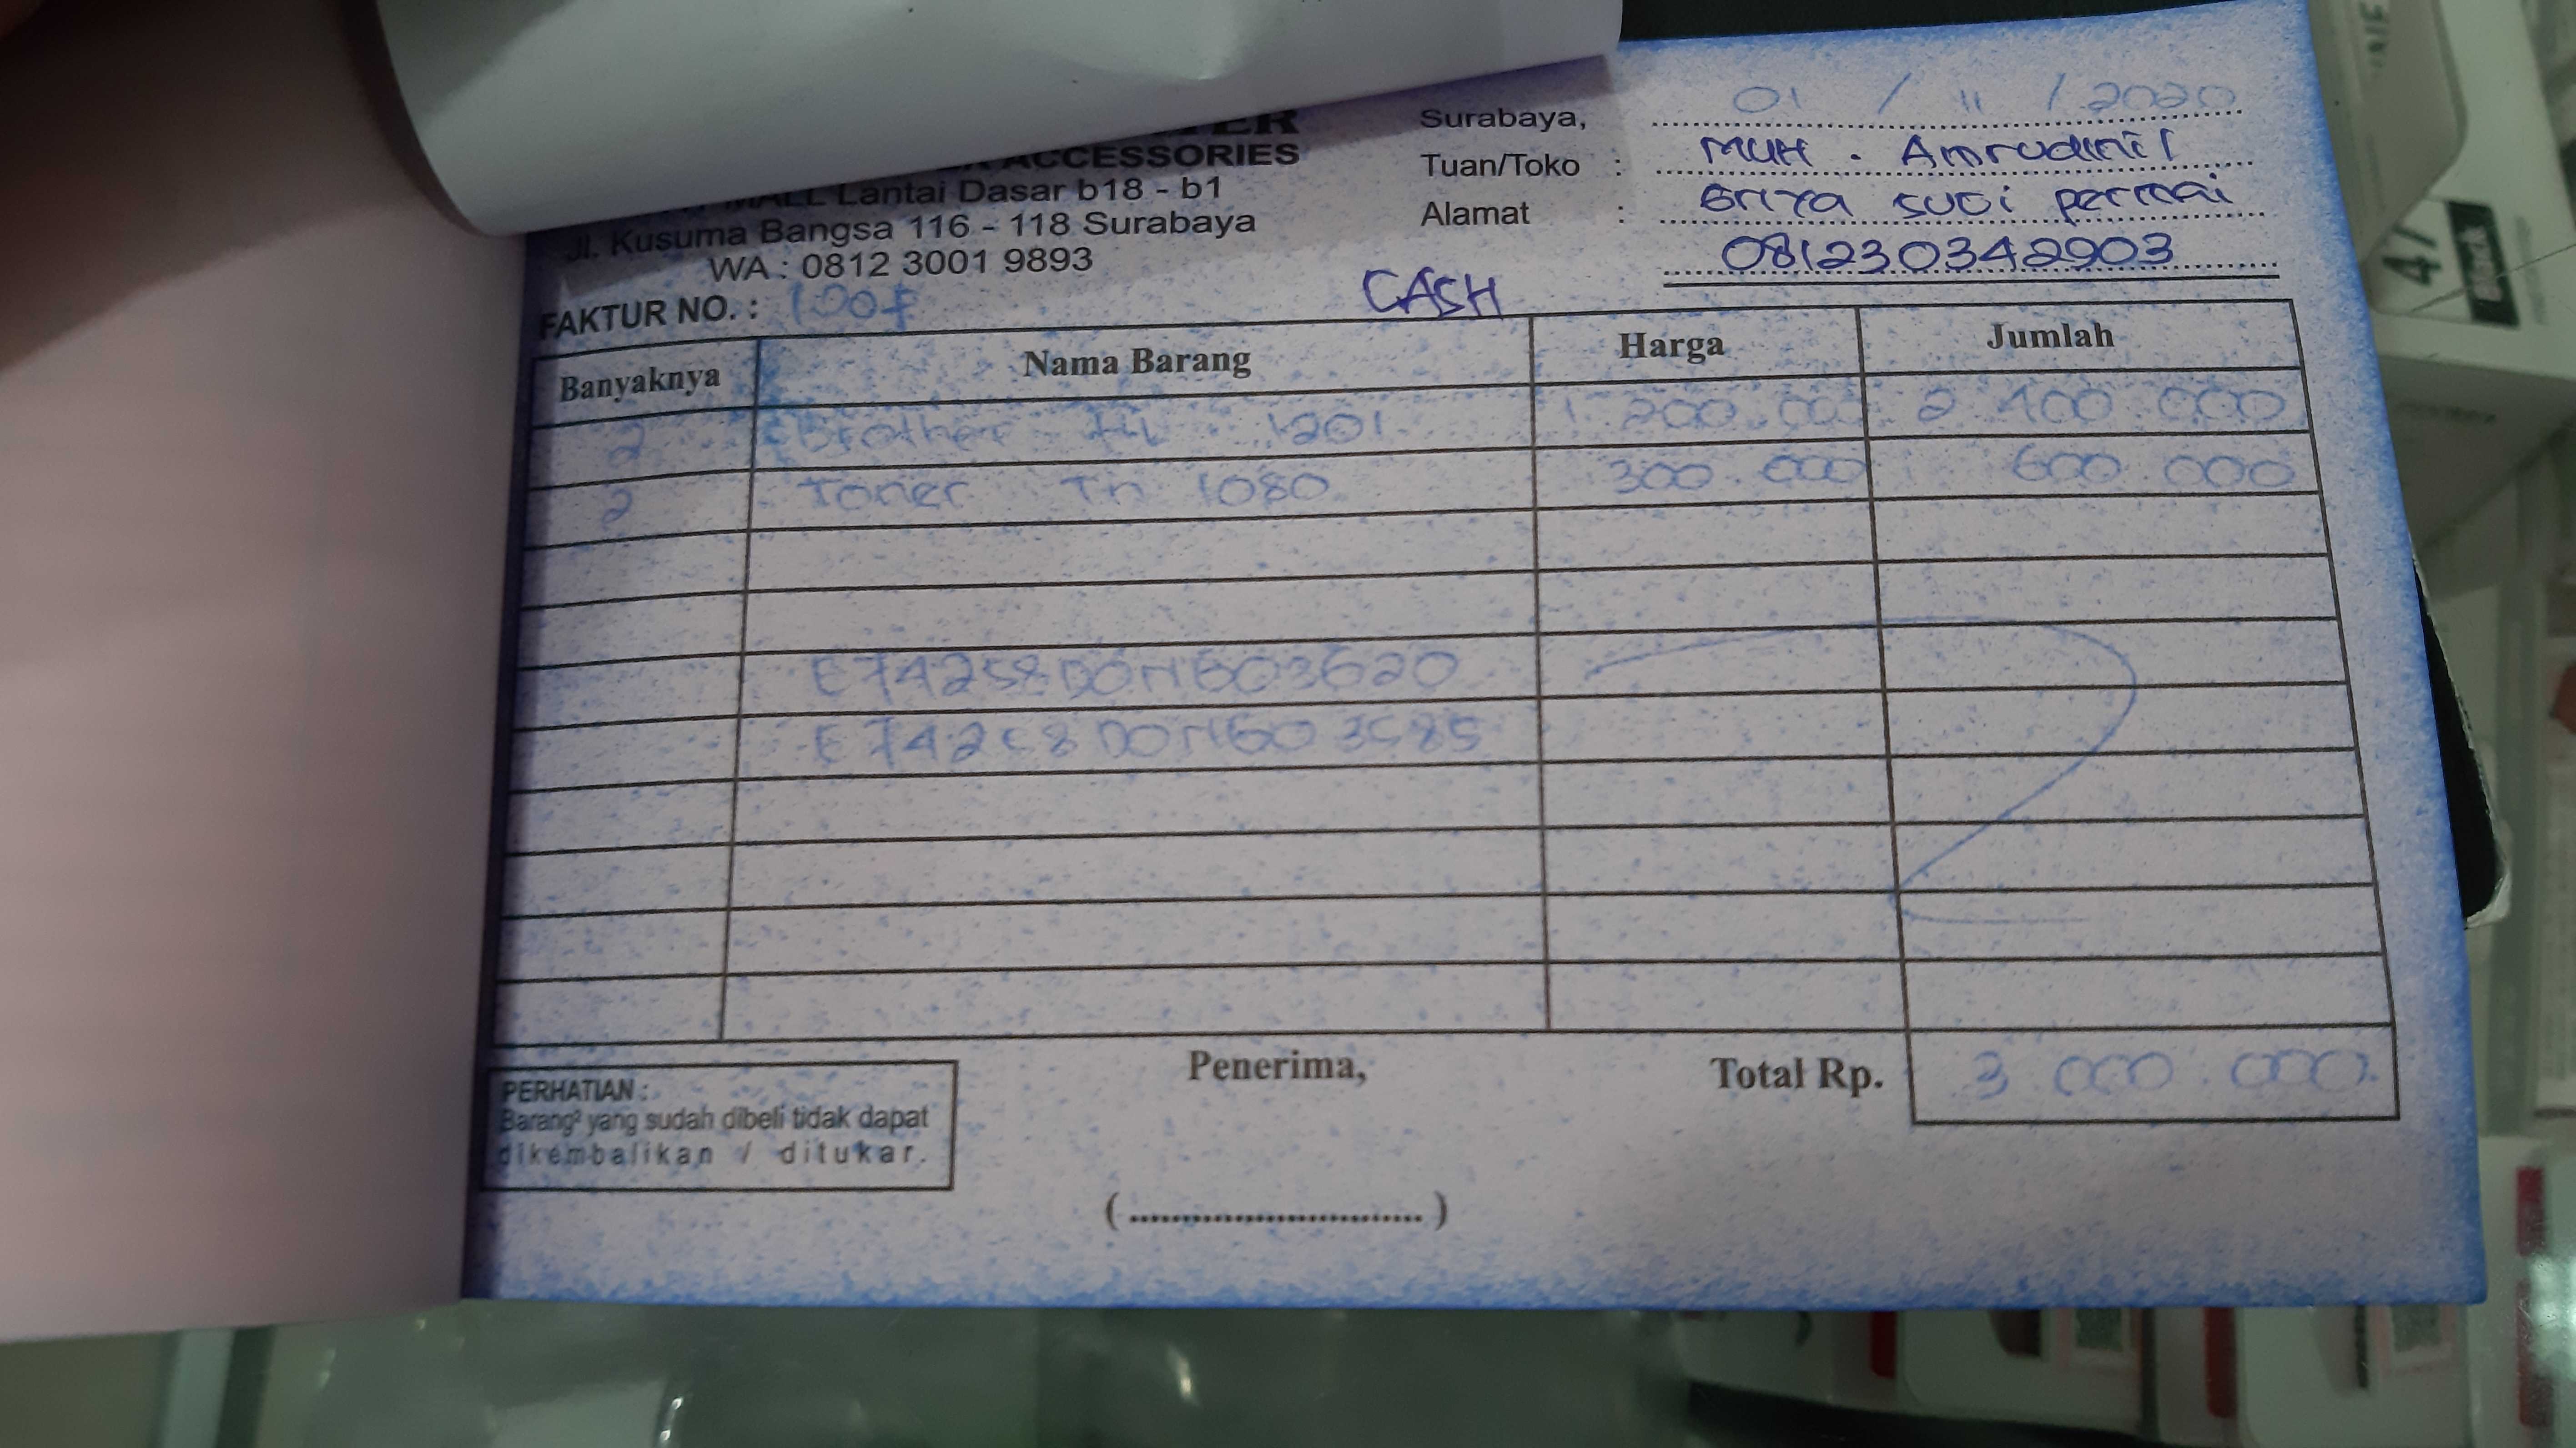 ACCESSORIES
MALL Lantai Dasar b18 - b1
Jl. Kusuma Bangsa 116 - 118 Surabaya
WA : 0812 3001 9893
FAKTUR NO. :
CASH
Surabaya, 01 / 11 / 2020
Tuan/Toko : MUH . Amrudinil
Alamat : Griya suci permai
081230342903
Banyaknya Nama Barang Harga Jumlah
2 Brother HL 1201 1 200.000 2 400.000
2 Toner Tn 1080 300.000 600.000
E74258D0N603620
Total Rp. 3 000.000
Penerima,
(.............................)
PERHATIAN :
Barang² yang sudah dibeli tidak dapat
dikembalikan / ditukar.